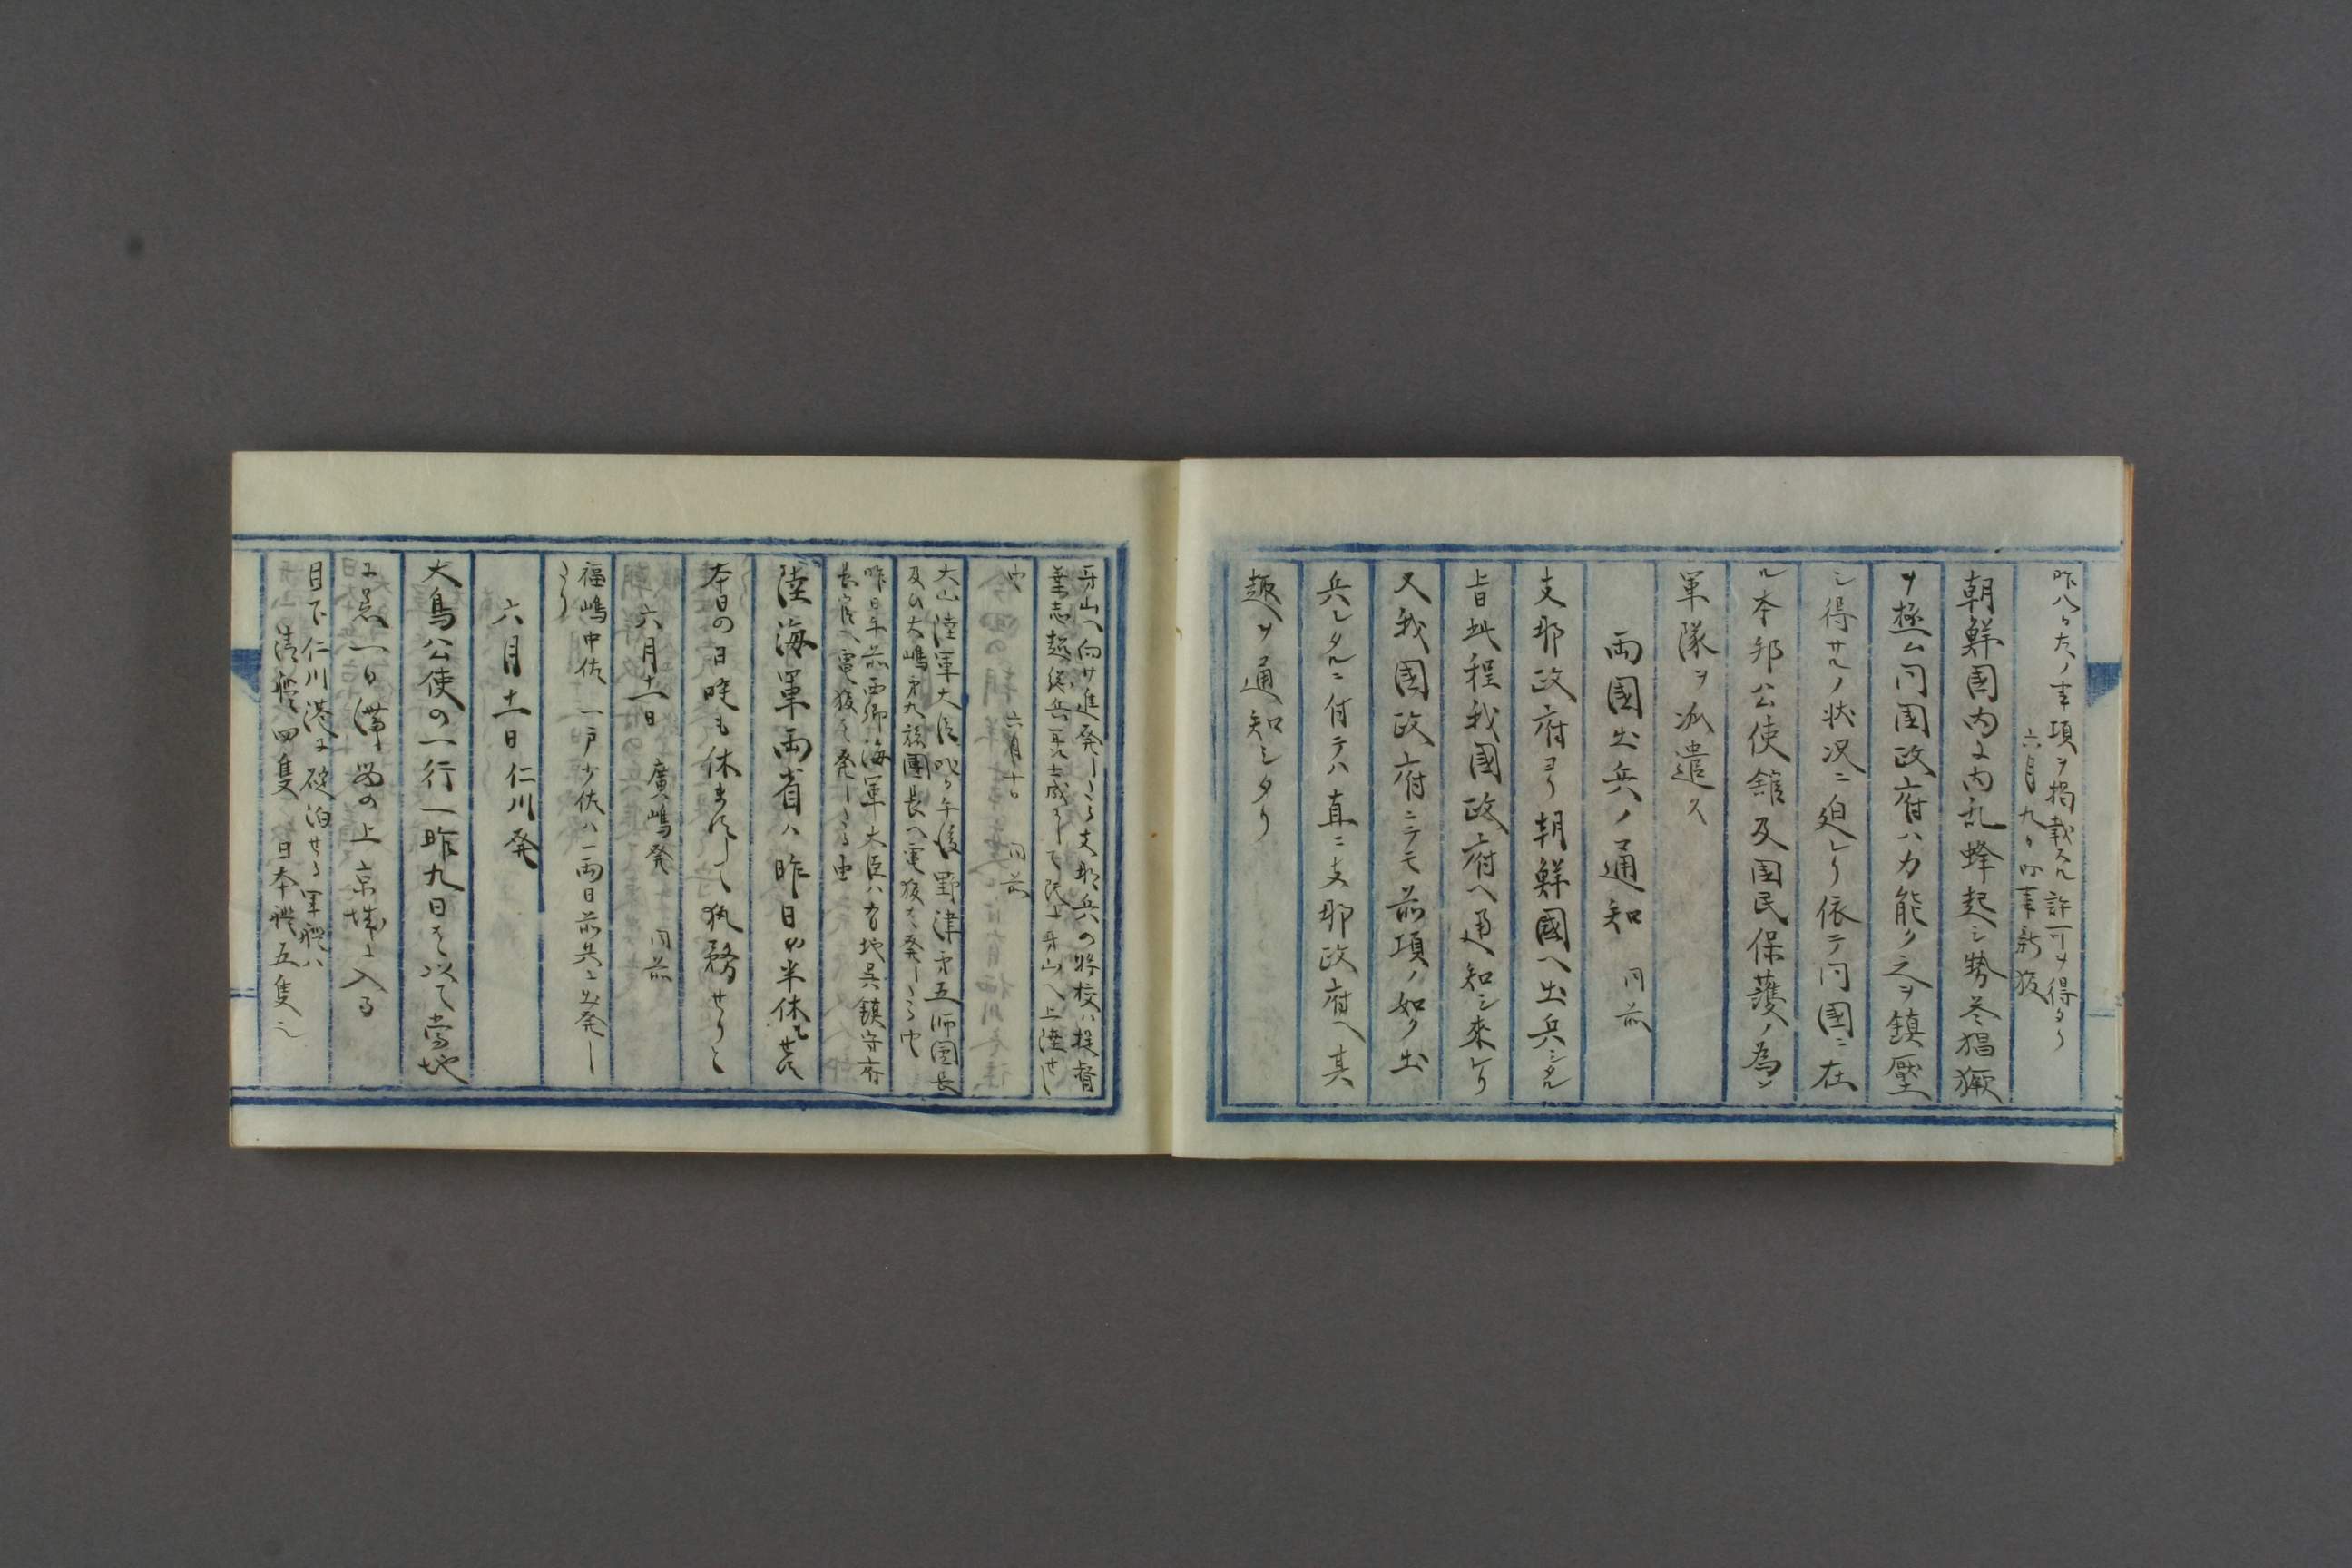 昨八日左ノ事項ヲ掲載スル許可ヲ得タリ
六月九日 時事新報
朝鮮国内ニ内乱蜂起シ勢益猖獗
ヲ極ム同国政府ハ力能ク之ヲ鎮壓
シ得サルノ状況ニ迫レリ依テ同國ニ在
ル本邦公使舘及国民保護ノ為メ
軍隊ヲ派遣ス
両國出兵ノ通知 同前
支那政府ヨリ朝鮮國ヘ出兵シタル
旨此程我國政府ヘ通知シ來レリ
又我国政府ニテモ前項ノ如ク出
兵シタルニ付テハ直ニ支那政府ヘ其
趣ヲ通知シタリ
牙山へ向け進発したる支那兵の将校ハ提督
葉志超総兵聶士成にして既に牙山へ上陸せし
由 六月十日 同前
大山陸軍大臣ハ昨日午後野津第五師団長
及ひ大嶋第九旅團長へ電報を発したる由
昨日午前西郷海軍大臣ハ有地呉鎮守府
長官へ電報を発したる由
陸海軍両省ハ昨日の半休も せす
本日の日曜も休ますして執務せりと
六月十一日 廣嶋発 同前
福嶋中佐一戸少佐ハ一両日前共に出発し
たり
六月十一日仁川発
大鳥公使の一行一昨九日を以て当地
に着一日滞留の上京城に入る
目下仁川港に碇泊せる軍艦ハ
清艦四隻 日本艦五隻